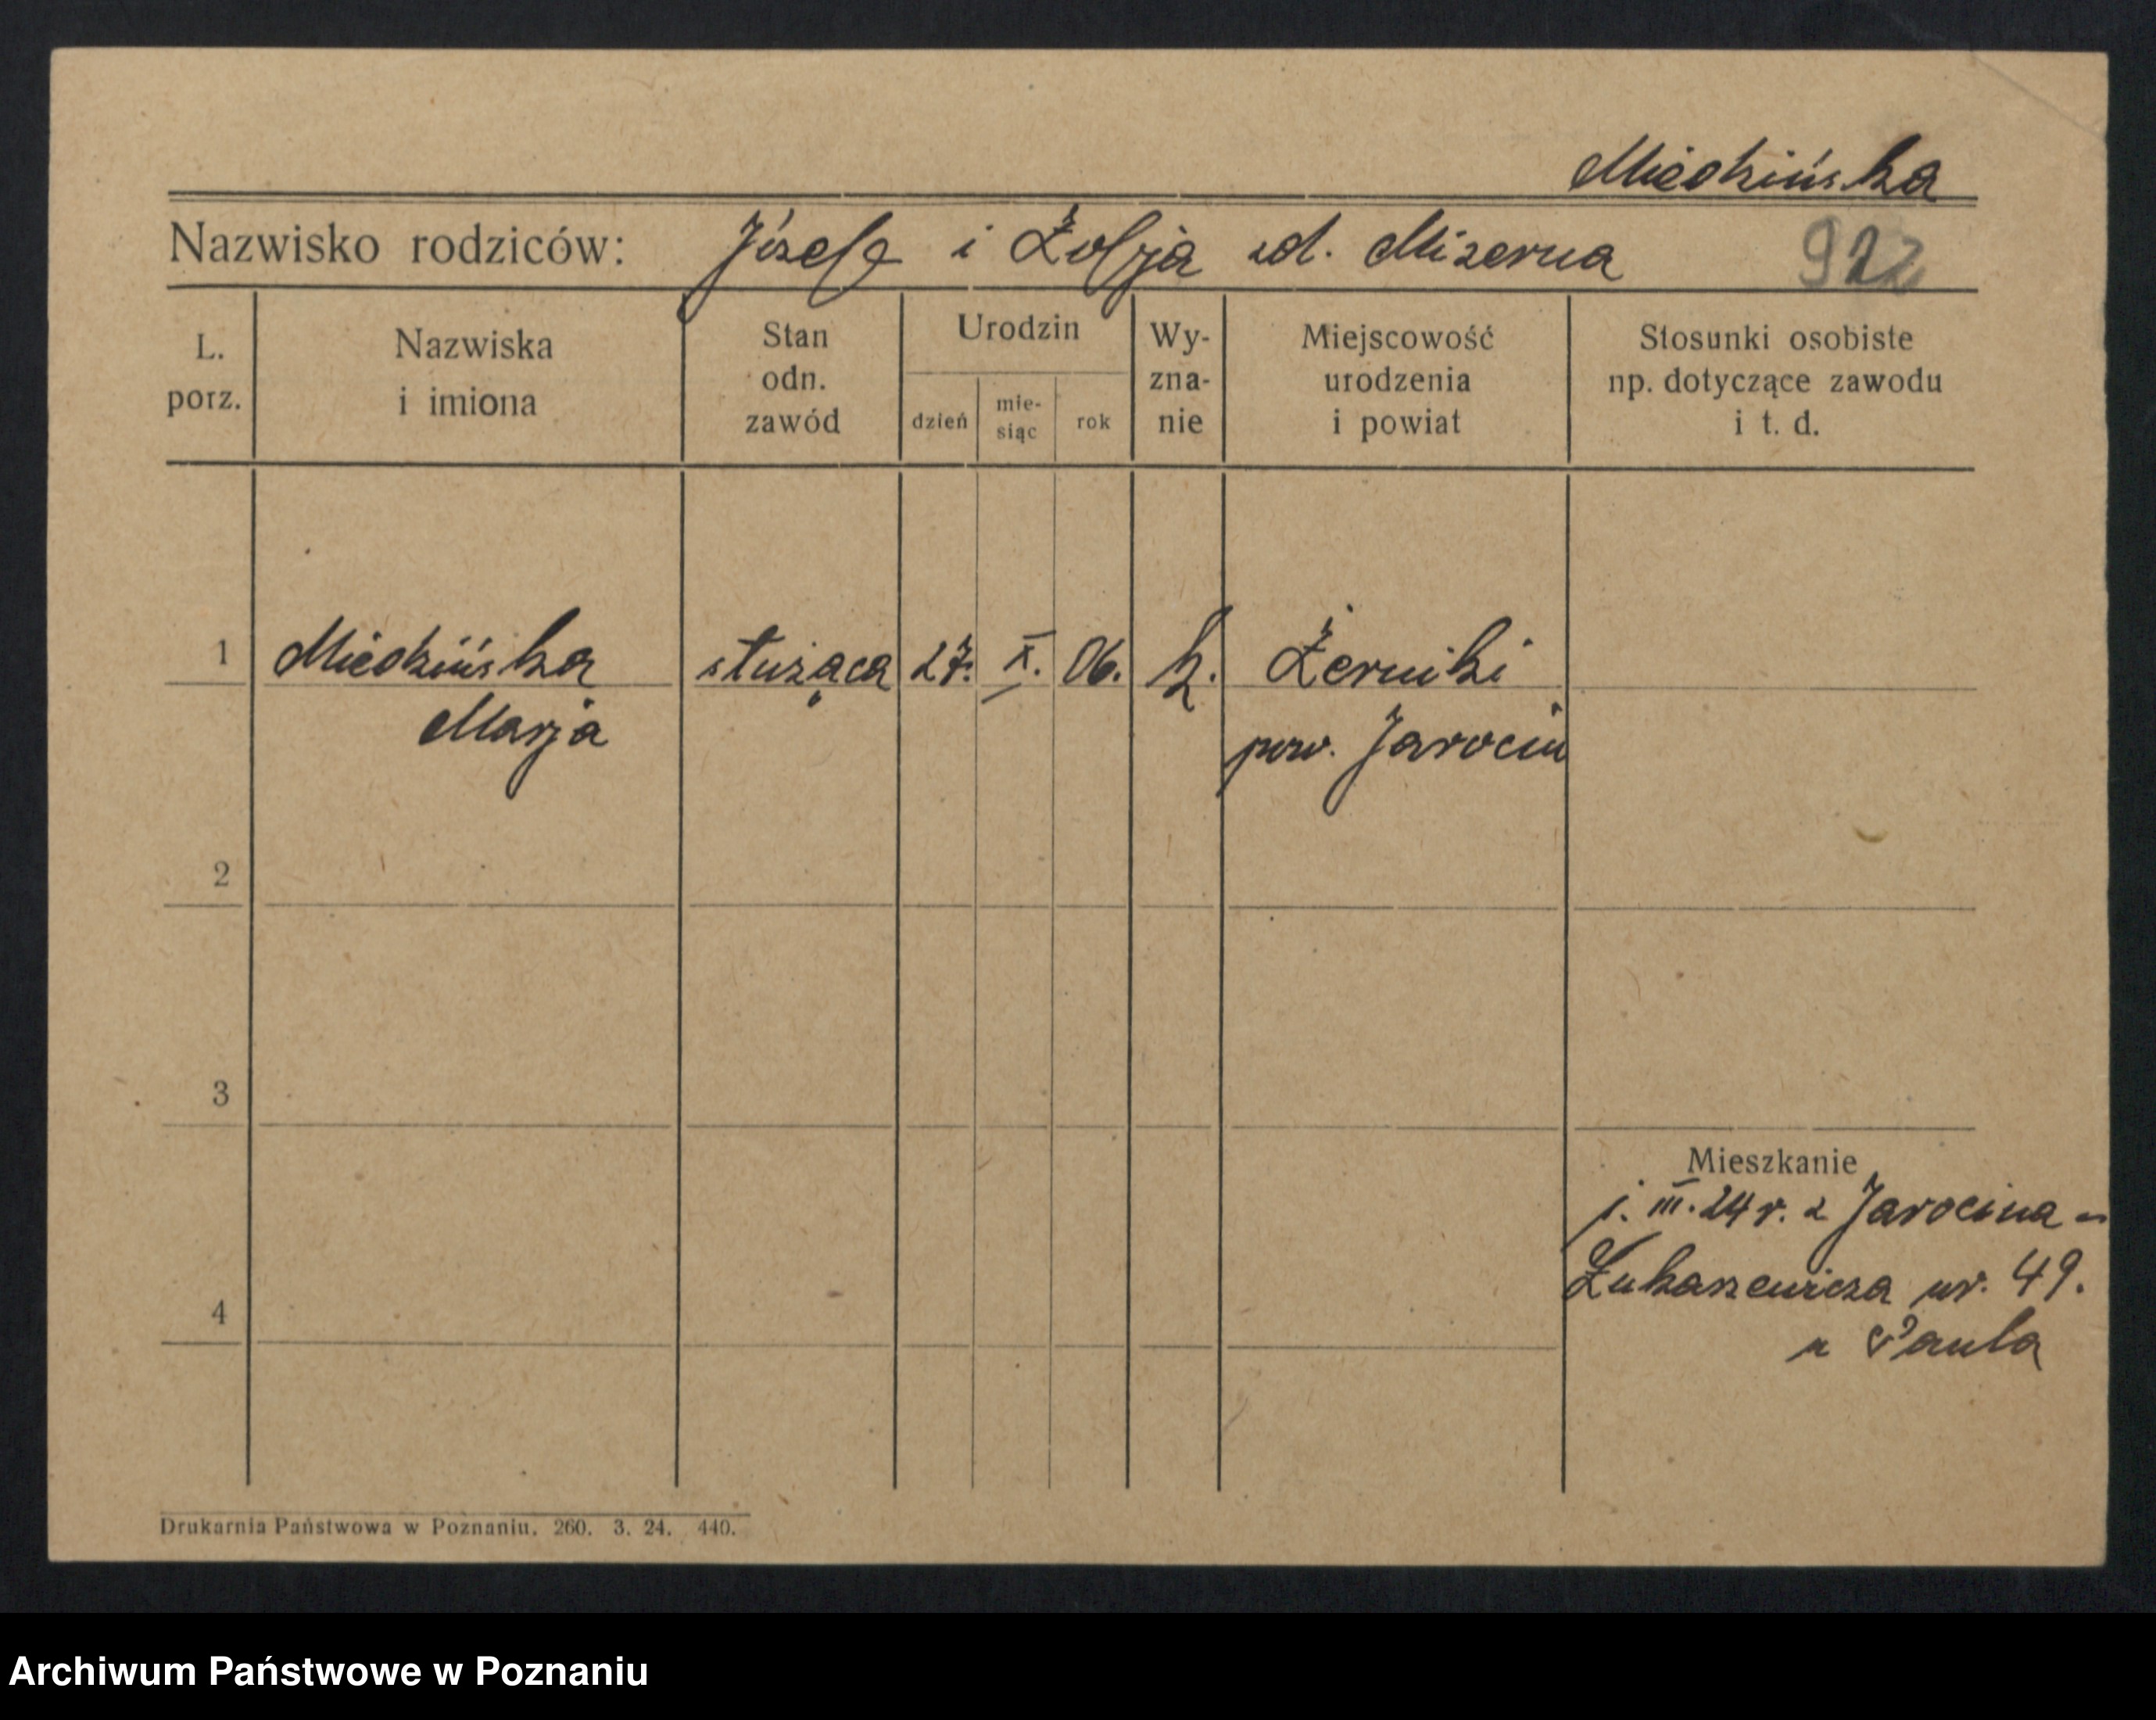 Miedzińska
Nazwisko rodziców: Józef i Zofja zd. Mizerna 922
L. porz. Nazwiska i imiona Stan odn. zawód Urodzin dzień mie- siąc rok Wy- zna- nie Miejscowość urodzenia i powiat Stosunki osobiste np. dotyczące zawodu i t. d.
1 Miedzińska służąca 27. X. 06. k. Żerniki
Marja pow. Jarocin
2
3
Mieszkanie
III. 24 r. z Jarocina
4 Łukaszewicza nr. 49.
u Paula
Drukarnia Państwowa w Poznaniu. 260. 3. 24. 440.
Archiwum Państwowe w Poznaniu